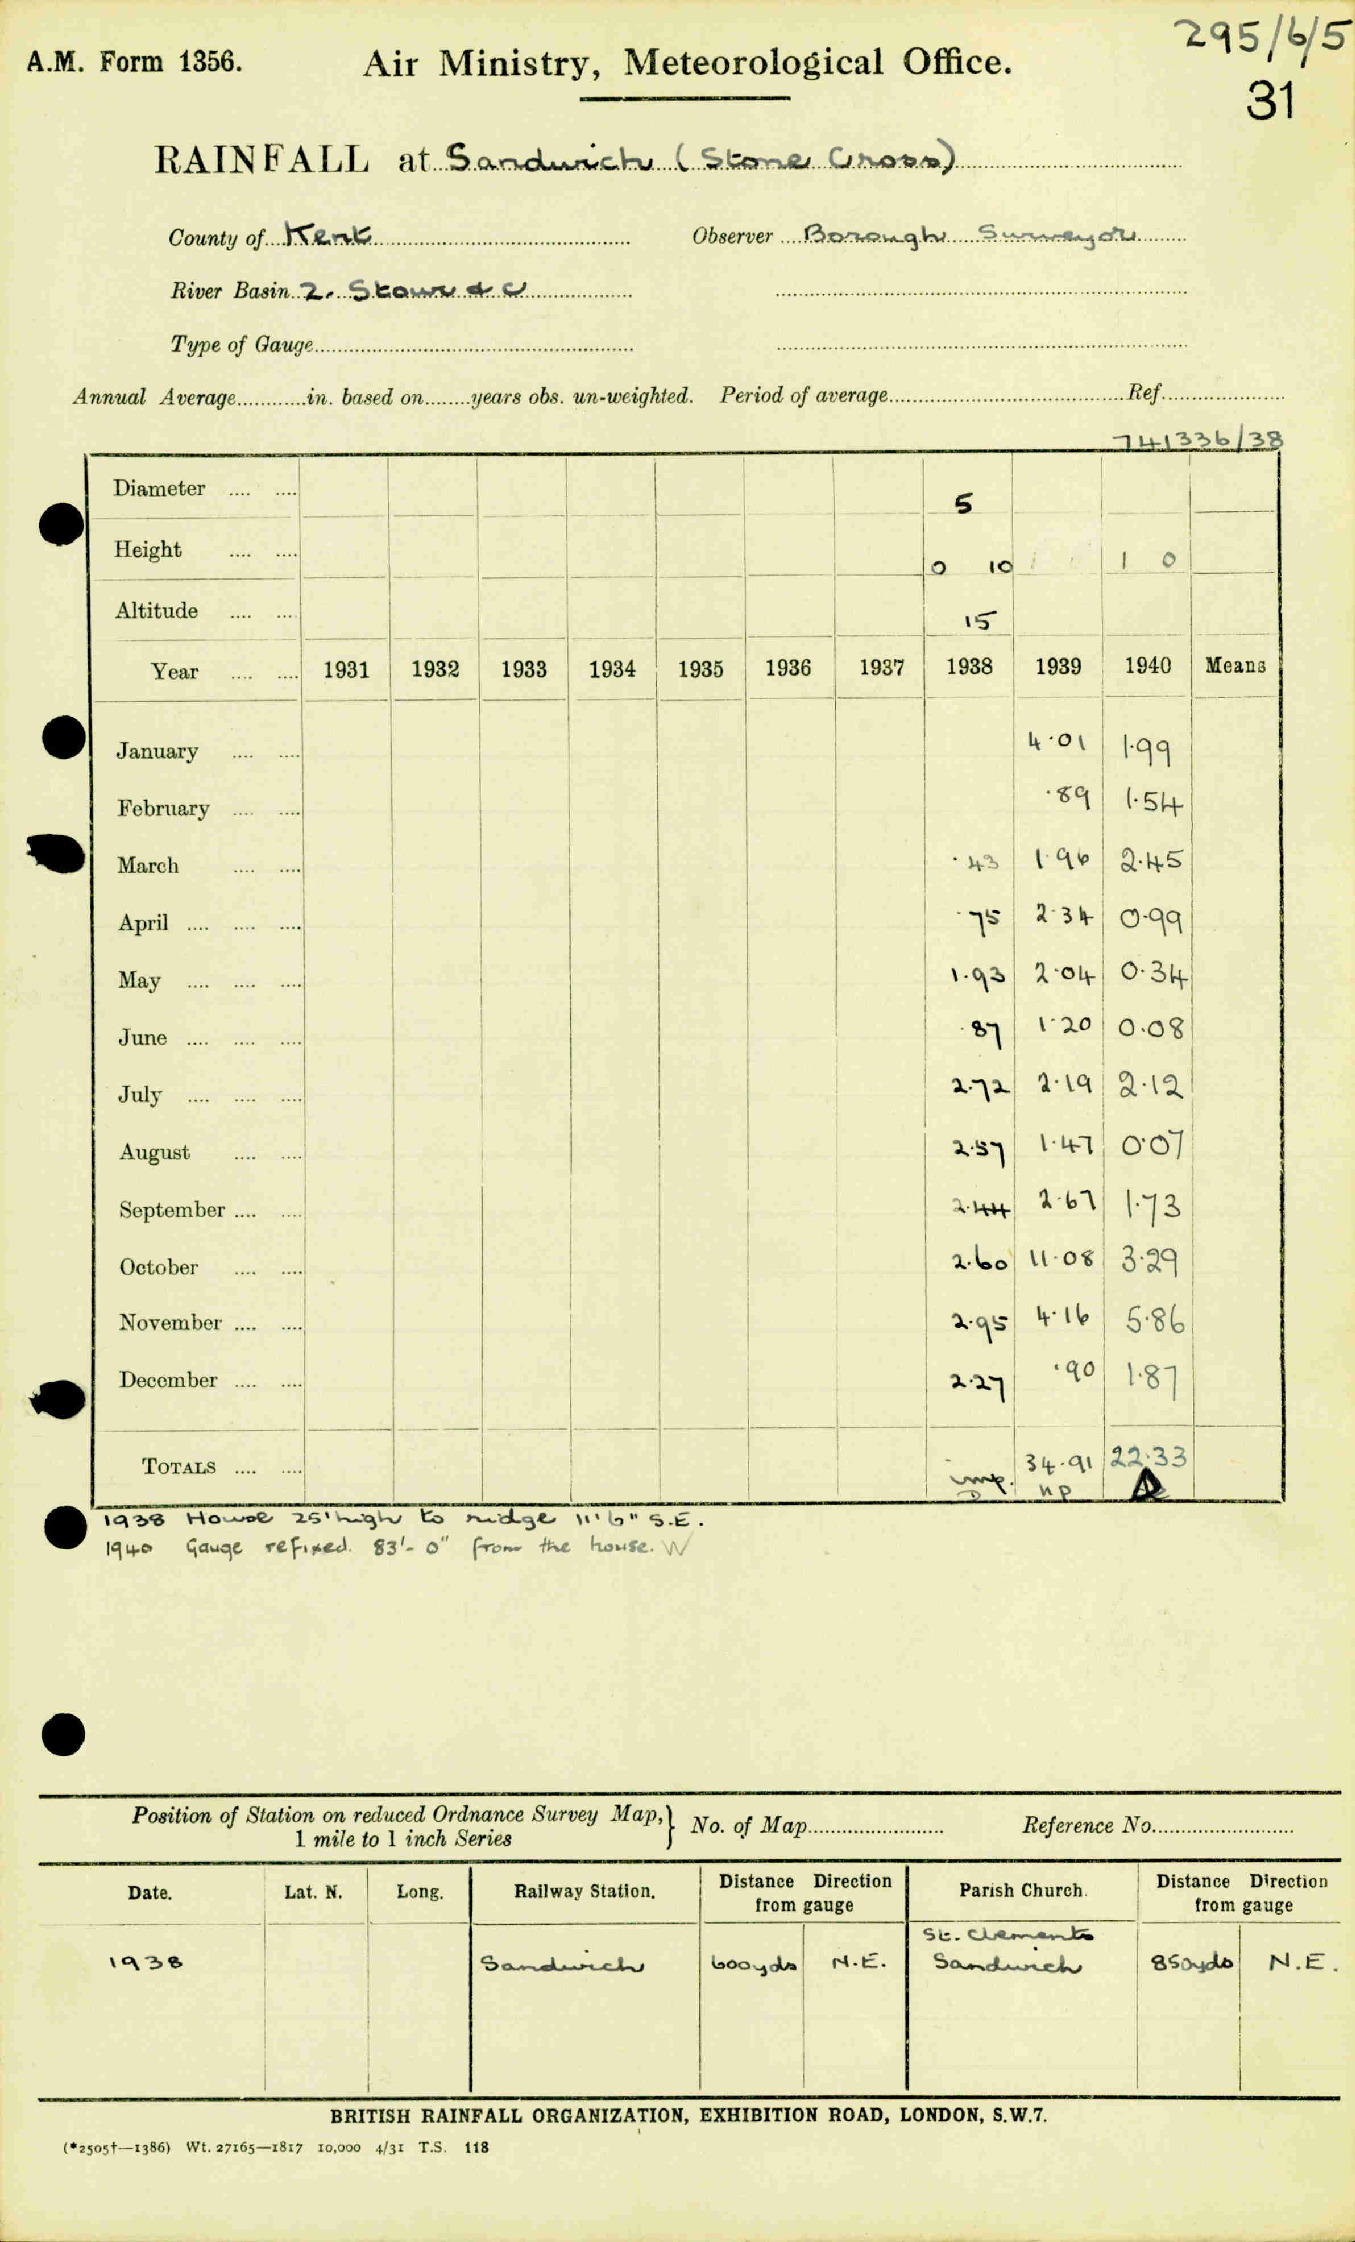 295/6/5
A.M. Form 1356. Air Ministry, Meteorological Office.
31
RAINFALL at Sandwich (Stone Cross)
County of Kent Observer Borough Surveyor
River Basin 2. Stour &c
Type of Gauge
Annual Average in. based on years obs. un-weighted. Period of average Ref.
741336/38
Diameter 5
Height 0 10 1 0
Altitude 15
Year 1931 1932 1933 1934 1935 1936 1937 1938 1939 1940 Means
January 4.01 1.99
February .89 1.54
March .43 1.96 2.45
April .75 2.34 0.99
May 1.93 2.04 0.34
June .87 1.20 0.08
July 2.72 2.19 2.12
August 2.57 1.47 0.07
September 2.44 2.67 1.73
October 2.60 11.08 3.29
November 2.95 4.16 5.86
December 2.27 .90 1.87
TOTALS imp. 34.91 22.33
D np
1938 House 25' high to ridge 11'6" S.E.
1940 Gauge refixed. 83'-0" from the house. W
Position of Station on reduced Ordnance Survey Map, 1 mile to 1 inch Series } No. of Map Reference No.
Date. Lat. N. Long. Railway Station. Distance Direction from gauge Parish Church. Distance Direction from gauge
St. Clements
1938 Sandwich 600yds N.E. Sandwich 850yds N.E.
BRITISH RAINFALL ORGANIZATION, EXHIBITION ROAD, LONDON, S.W.7.
(*2505†—1386) Wt. 27165—1817 10,000 4/31 T.S. 118